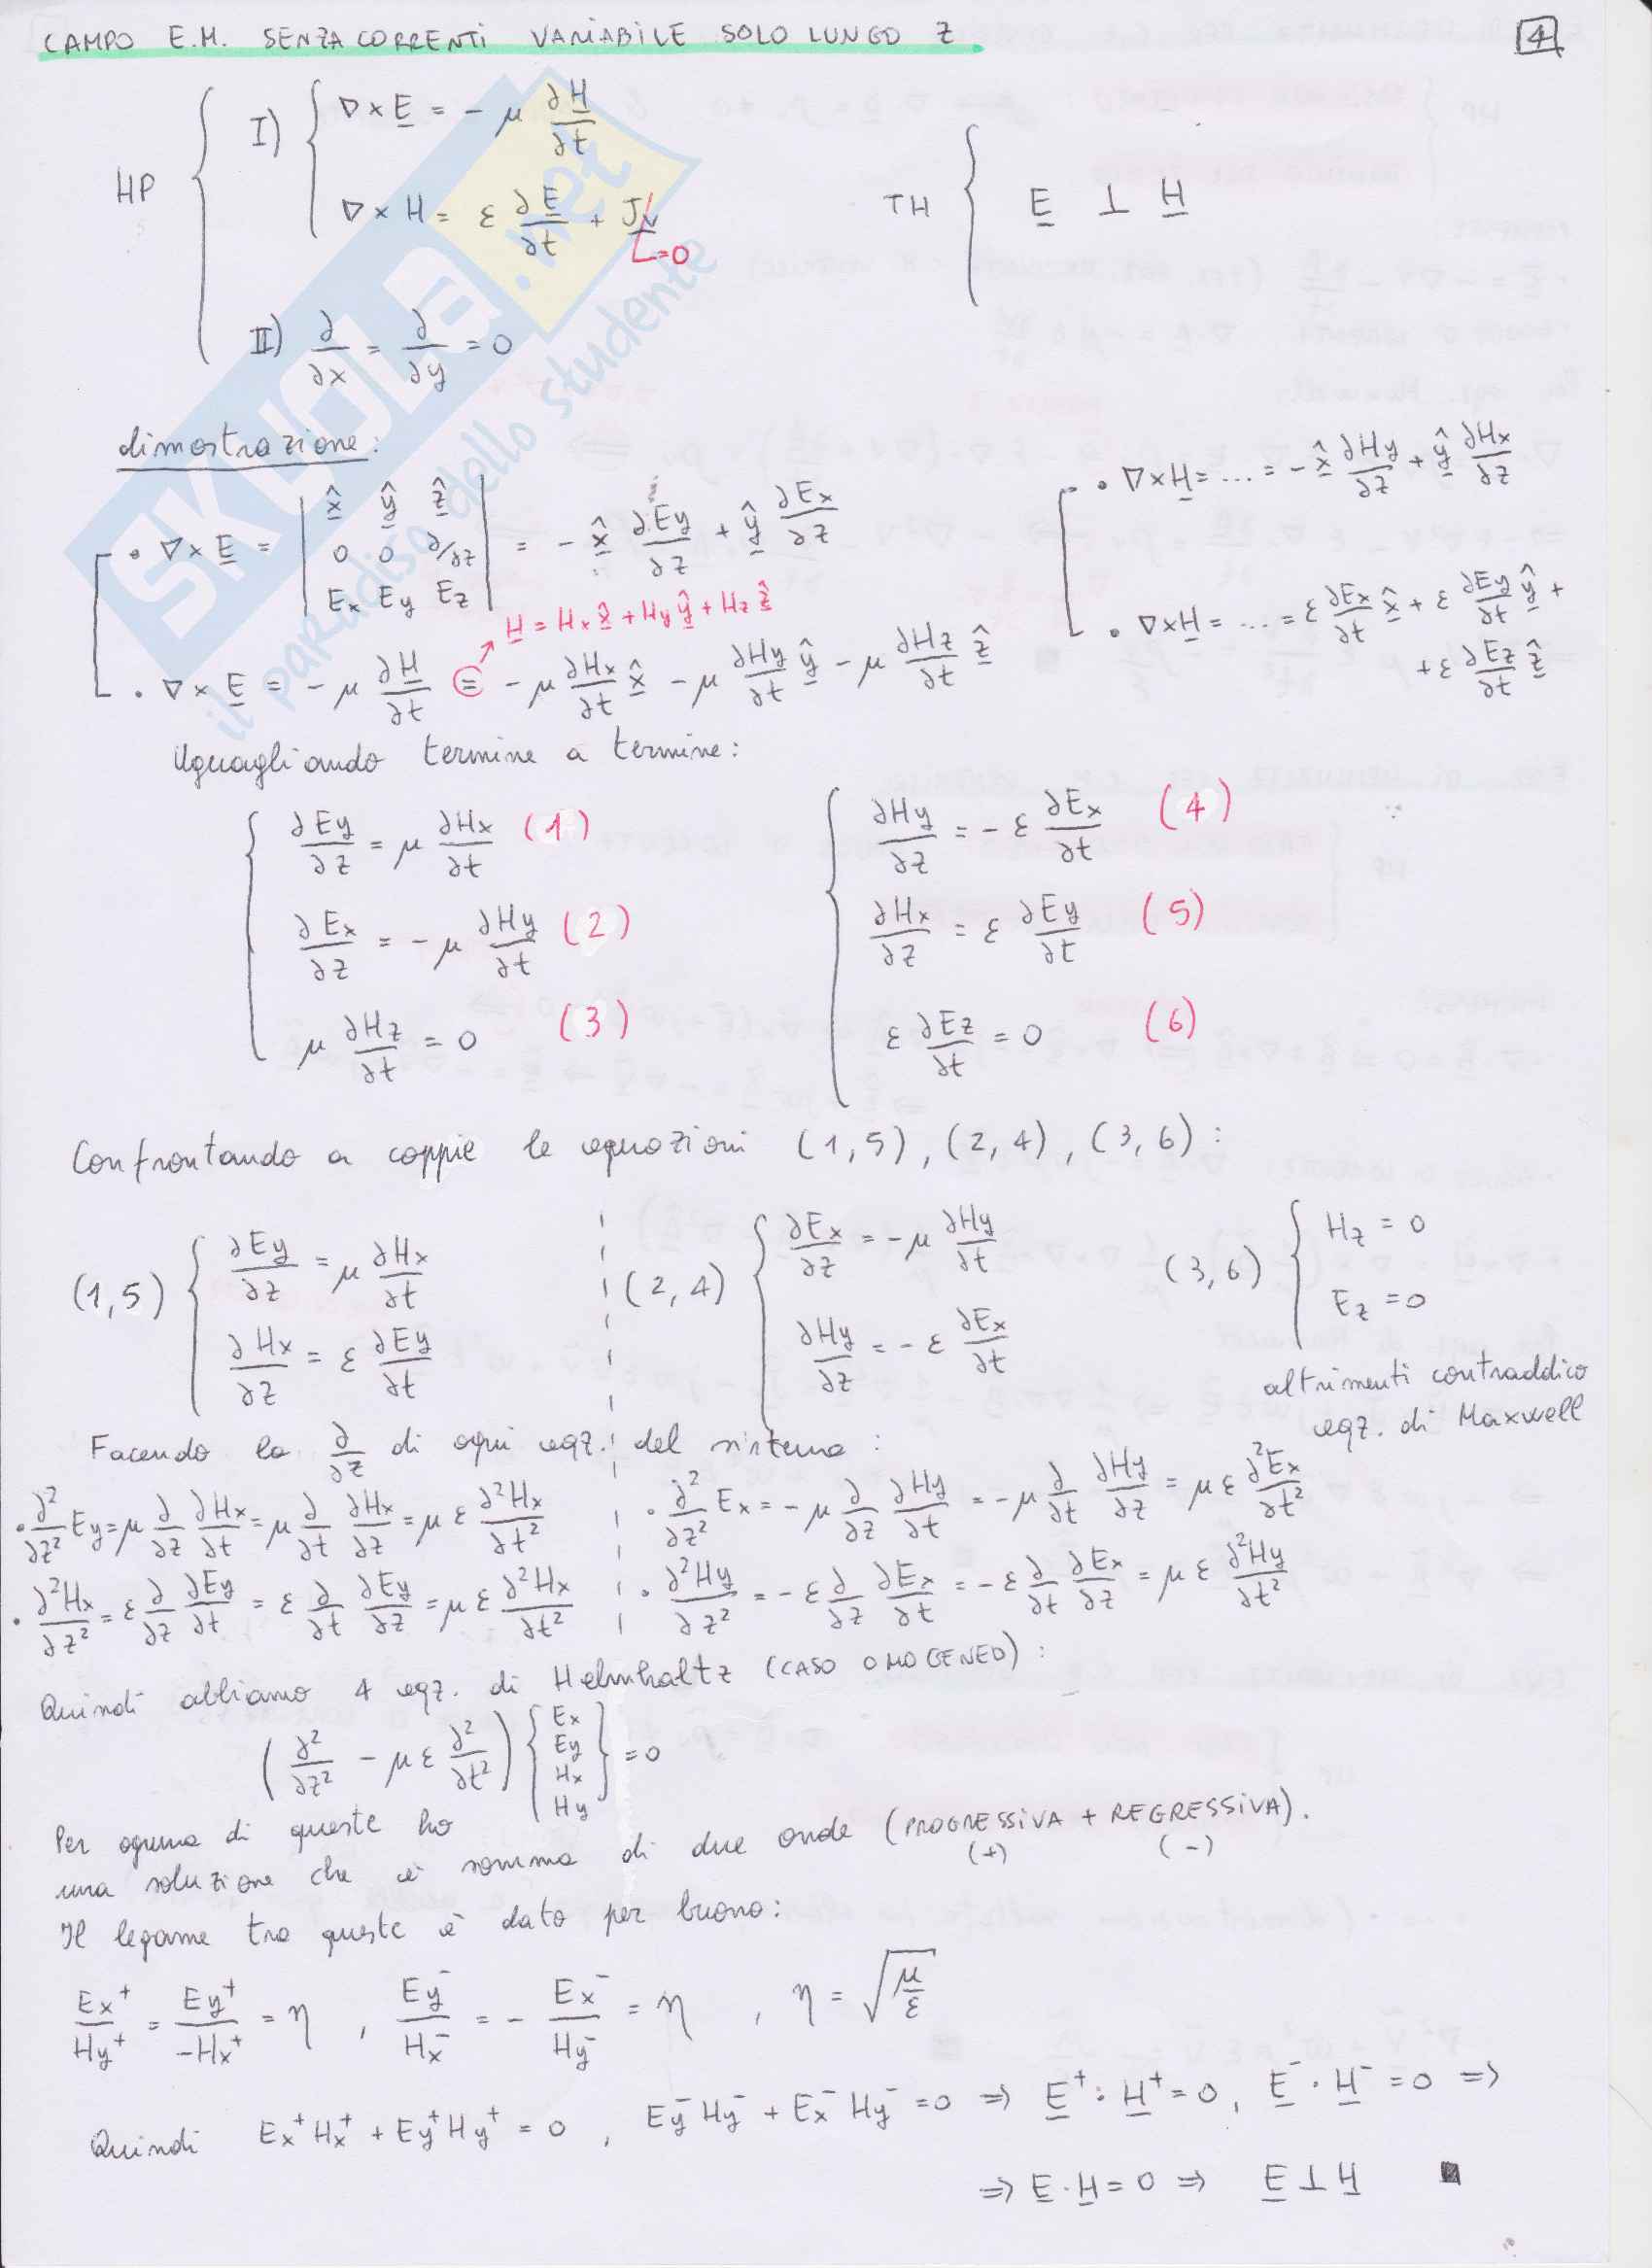 CAMPO E.M. SENZA CORRENTI VARIABILE SOLO LUNGO Z
4
HP { I) { ∇×E = -μ ∂H/∂t
∇×H = ε ∂E/∂t + Jv =0
II) ∂/∂x = ∂/∂y = 0
TH { E ⊥ H
SKUOLA.net
il paradiso dello studente
dimostrazione:
• ∇×E = | x̂ ŷ ẑ |
| 0 0 ∂/∂z |
| Ex Ey Ez | = - x̂ ∂Ey/∂z + ŷ ∂Ex/∂z
H = Hx x̂ + Hy ŷ + Hz ẑ
• ∇×E = -μ ∂H/∂t = -μ ∂Hx/∂t x̂ - μ ∂Hy/∂t ŷ - μ ∂Hz/∂t ẑ
• ∇×H = ... = - x̂ ∂Hy/∂z + ŷ ∂Hx/∂z
• ∇×H = ... = ε ∂Ex/∂t x̂ + ε ∂Ey/∂t ŷ +
+ ε ∂Ez/∂t ẑ
Uguagliando termine a termine:
∂Ey/∂z = μ ∂Hx/∂t (1)
∂Ex/∂z = -μ ∂Hy/∂t (2)
μ ∂Hz/∂t = 0 (3)
∂Hy/∂z = -ε ∂Ex/∂t (4)
∂Hx/∂z = ε ∂Ey/∂t (5)
ε ∂Ez/∂t = 0 (6)
Confrontando a coppie le equazioni (1,5), (2,4), (3,6):
(1,5) { ∂Ey/∂z = μ ∂Hx/∂t
∂Hx/∂z = ε ∂Ey/∂t
(2,4) { ∂Ex/∂z = -μ ∂Hy/∂t
∂Hy/∂z = -ε ∂Ex/∂t
(3,6) { Hz = 0
Ez = 0
altrimenti contraddico
eqz. di Maxwell
Facendo la ∂/∂z di ogni eqz. del sistema:
• ∂²/∂z² Ey = μ ∂/∂z ∂Hx/∂t = μ ∂/∂t ∂Hx/∂z = μ ε ∂²Hx/∂t²
• ∂²Hx/∂z² = ε ∂/∂z ∂Ey/∂t = ε ∂/∂t ∂Ey/∂z = μ ε ∂²Hx/∂t²
• ∂²/∂z² Ex = -μ ∂/∂z ∂Hy/∂t = -μ ∂/∂t ∂Hy/∂z = μ ε ∂²Ex/∂t²
• ∂²Hy/∂z² = -ε ∂/∂z ∂Ex/∂t = -ε ∂/∂t ∂Ex/∂z = μ ε ∂²Hy/∂t²
Quindi abbiamo 4 eqz. di Helmhaltz (CASO OMOGENEO):
(∂²/∂z² - με ∂²/∂t²) { Ex
Ey
Hx
Hy } = 0
Per ognuna di queste ho
una soluzione che è somma di due onde (PROGRESSIVA + REGRESSIVA).
(+) (-)
Il legame tra queste è dato per buono:
Ex⁺/Hy⁺ = Ey⁺/-Hx⁺ = η , Ey⁻/Hx⁻ = - Ex⁻/Hy⁻ = η , η = √(μ/ε)
Quindi Ex⁺Hx⁺ + Ey⁺Hy⁺ = 0 , Ey⁻Hy⁻ + Ex⁻Hy⁻ = 0 ⇒ E⁺·H⁺ = 0, E⁻·H⁻ = 0 ⇒
⇒ E·H = 0 ⇒ E ⊥ H